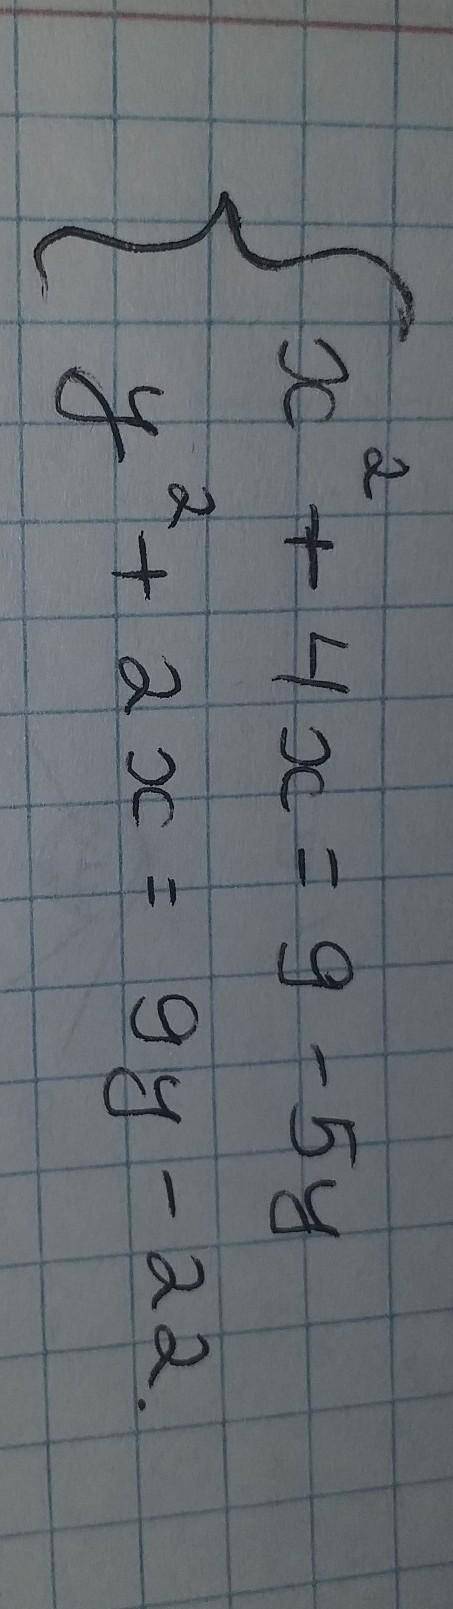 x² + 4x = 9 - 5y
y² + 2x = 9y - 22.